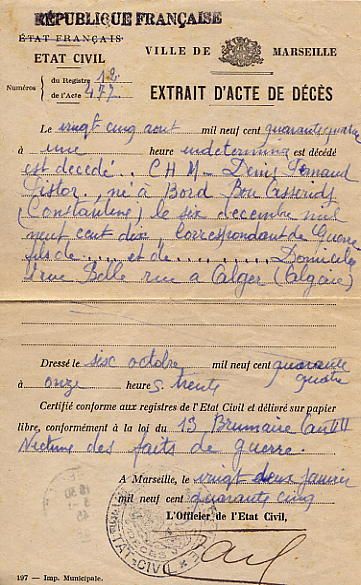 RÉPUBLIQUE FRANÇAISE
ÉTAT FRANÇAIS
ETAT CIVIL
VILLE DE MARSEILLE
Numéros
du Registre 12
de l'Acte 477
EXTRAIT D'ACTE DE DÉCÈS
Le vingt cinq aout mil neuf cent quarante quatre
à une heure indeterminée est décédé
est décédé .. Denis Fernand
né à Bord Bou
(Constantine) le six decembre mil
neuf cent dix, Correspondant de Guerre
fils de ..... et de .......... Domicilié
rue Belle à Alger (Algérie)
Dressé le six octobre mil neuf cent quarante
quatre
à onze heures trente
Certifié conforme aux registres de l'Etat Civil et délivré sur papier
libre, conformément à la loi du 13 Brumaire
Victime des faits de guerre.
A Marseille, le vingt deux janvier
mil neuf cent quarante cinq
L'Officier de l'Etat Civil,
ETAT-CIVIL
197 — Imp. Municipale.